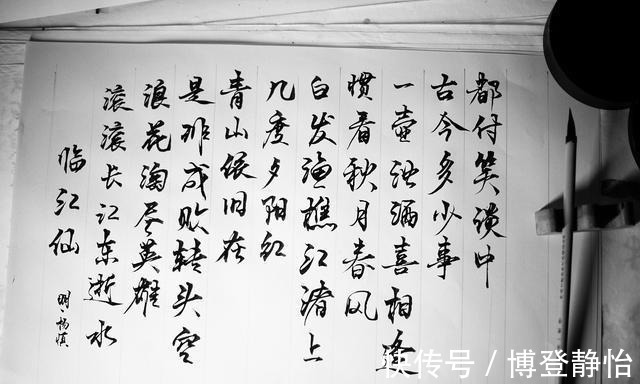 临江仙
明·杨慎
滚滚长江东逝水
浪花淘尽英雄
是非成败转头空
青山依旧在
几度夕阳红
白发渔樵江渚上
惯看秋月春风
一壶浊酒喜相逢
古今多少事
都付笑谈中
快传号 / 博登静怡